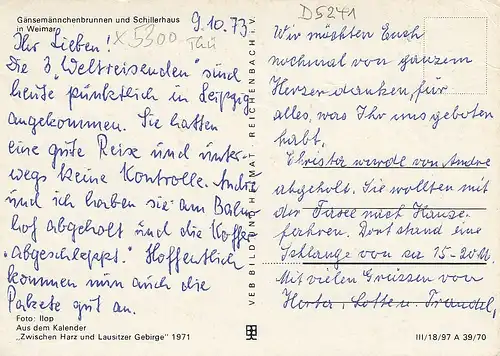 Gänsemännchenbrunnen und Schillerhaus
in Weimar
9.10.73
X 5300
Thü
D5241
Ihr Lieben!
Die 3 „Weltreisenden" sind
heute pünktlich in Leipzig
angekommen. Sie hatten
eine gute Reise und unter-
wegs keine Kontrolle. André
und ich haben sie am Bahn
hof abgeholt und die Koffer
„abgeschleppt". Hoffentlich
kommen nun auch die
Pakete gut an.
Foto: Ilop
Aus dem Kalender
„Zwischen Harz und Lausitzer Gebirge" 1971
VEB BILD UND HEIMAT · REICHENBACH i. V.
Wir möchten Euch
nochmal von ganzem
Herzen danken, für
alles, was Ihr uns geboten
habt.
Christa wurde von Andre
abgeholt. Sie wollten mit
der Taxe nach Hause
fahren. Dort stand eine
Schlange von ca 15-20 M.
Mit vielen Grüssen von
Herta, Lotte u. Traudel,
III/18/97 A 39/70